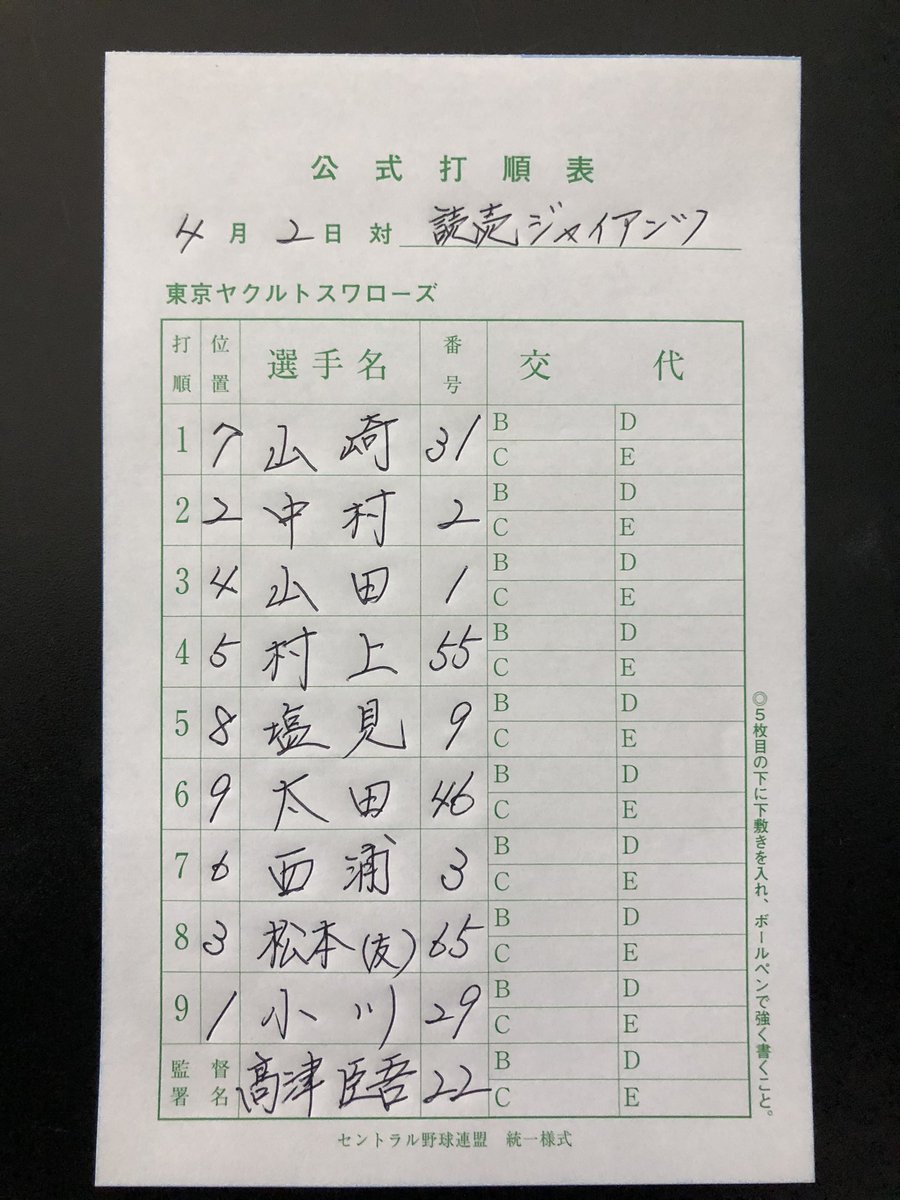 公式打順表
4月2日対 読売ジャイアンツ
東京ヤクルトスワローズ
打順 位置 選手名 番号 交代
1 7 山崎 31 B D
C E
2 2 中村 2 B D
C E
3 4 山田 1 B D
C E
4 5 村上 55 B D
C E
5 8 塩見 9 B D
C E
6 9 太田 46 B D
C E
7 6 西浦 3 B D
C E
8 3 松本(友) 65 B D
C E
9 1 小川 29 B D
C E
監督署名 髙津臣吾 22 B D
C E
セントラル野球連盟 統一様式
◎5枚目の下に下敷きを入れ、ボールペンで強く書くこと。